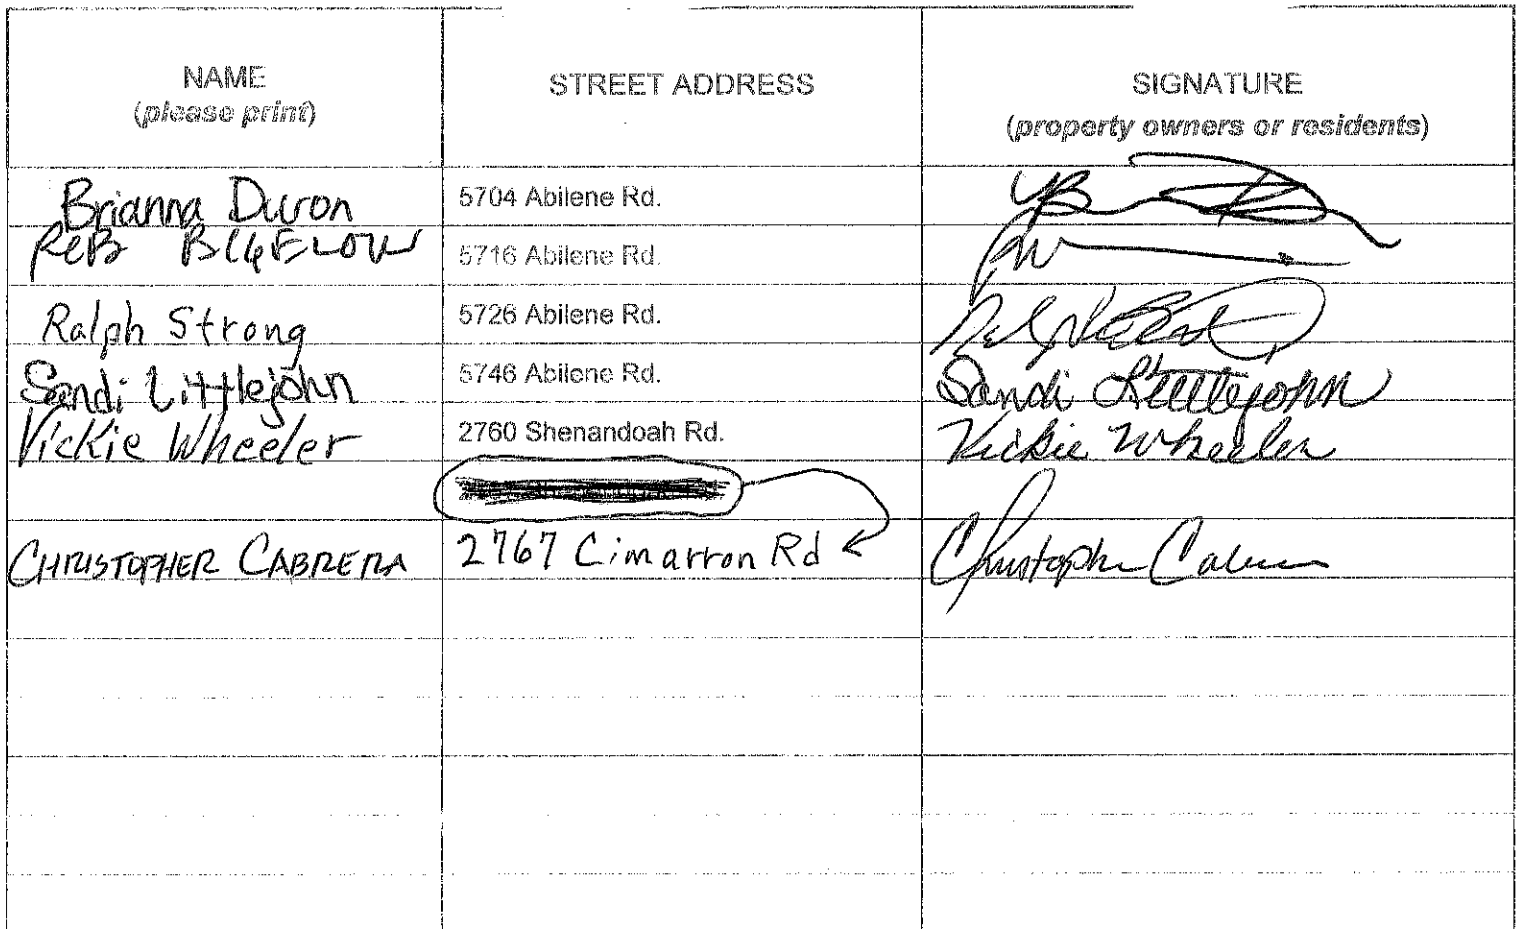 NAME STREET ADDRESS SIGNATURE
(please print) (property owners or residents)
Brianna Duron 5704 Abilene Rd.
ReB BIGELOW 5716 Abilene Rd.
Ralph Strong 5726 Abilene Rd.
Sandi Littlejohn 5746 Abilene Rd. Sandi Littlejohn
Vickie Wheeler 2760 Shenandoah Rd. Vickie Wheeler
CHRISTOPHER CABRERA 2767 Cimarron Rd Christopher Cabrera